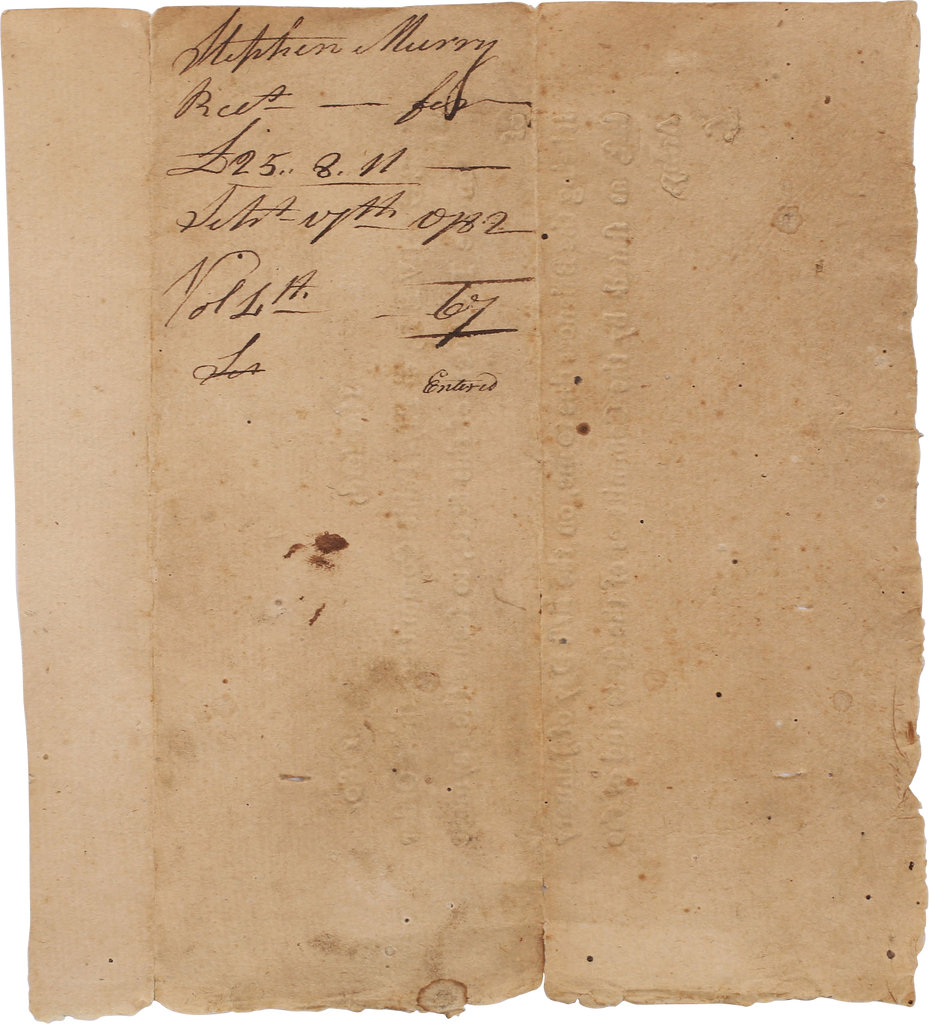 Stephen Murry
Rect — for
£25.. 8. 11 —
Sebt 17th 1782
Vol 4th. - 67
Entered